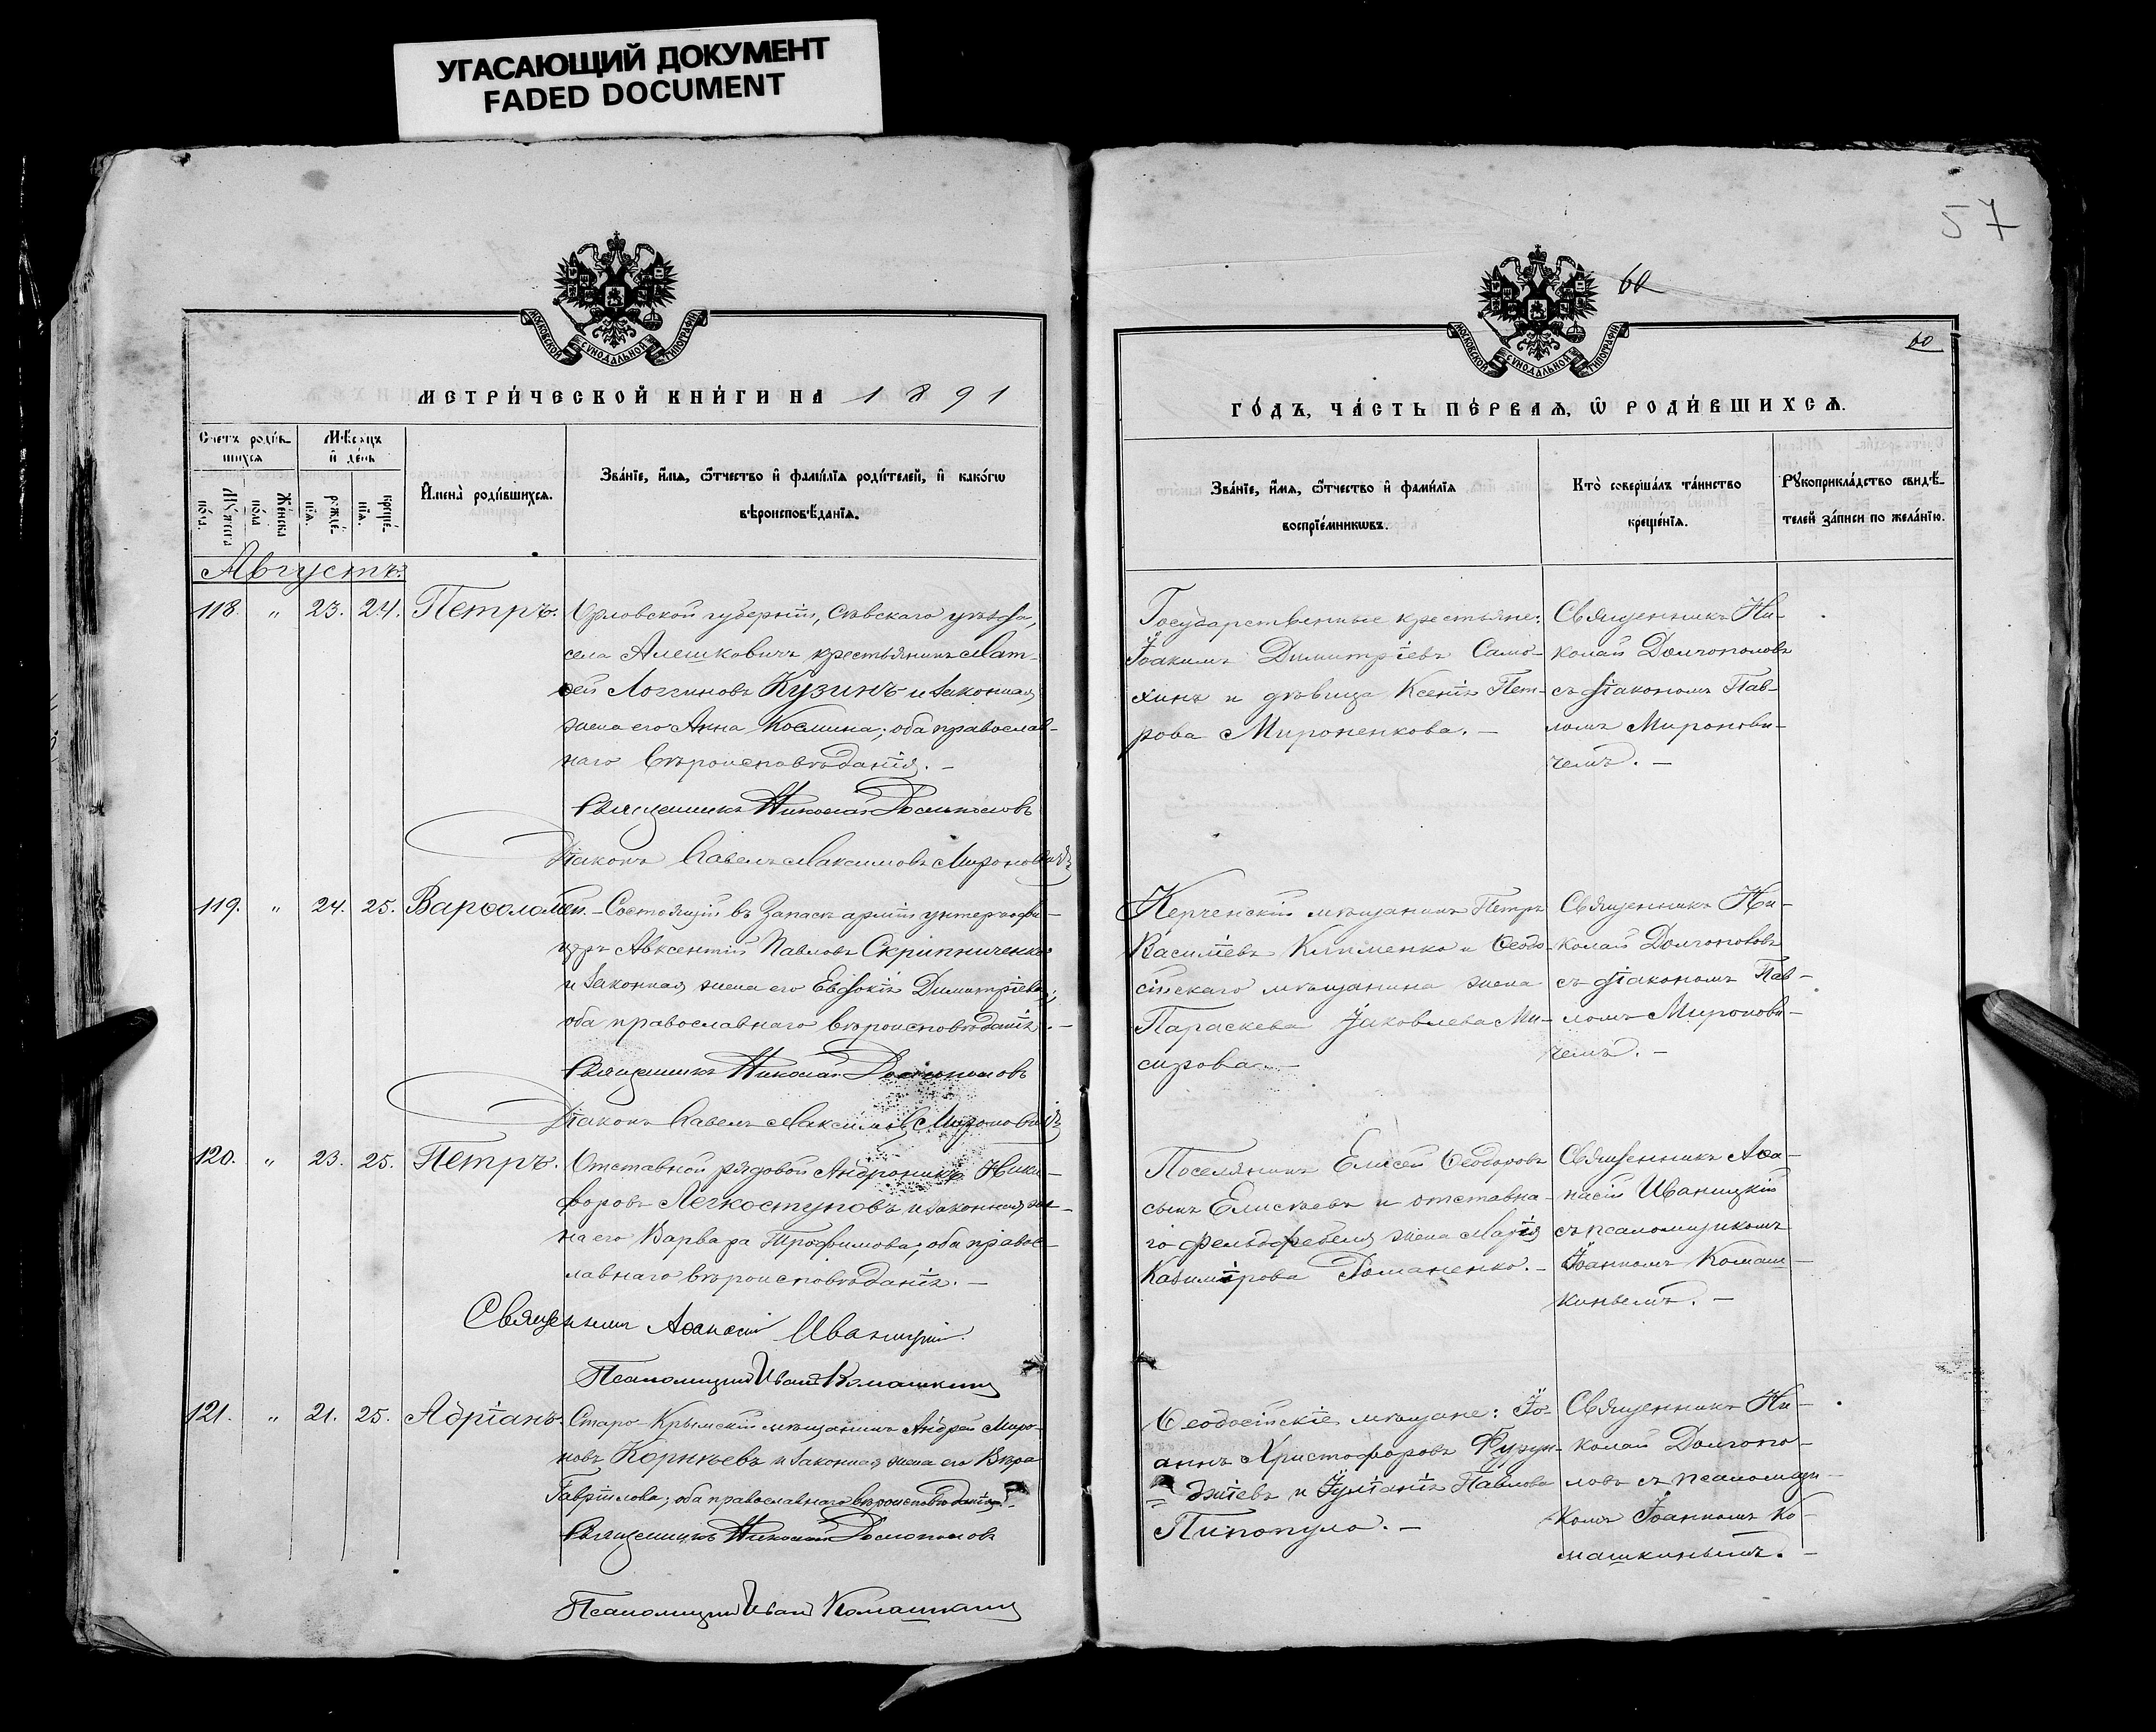 УГАСАЮЩИЙ ДОКУМЕНТ
FADED DOCUMENT
57
60
60
МОСКОВСКОЙ СѴНОДАЛЬНОЙ ТИПОГРАФІИ
МЕТРИ́ЧЕСКОЙ КНИ́ГИ НА 1891
Счетъ роди́вшихся
Мѣсяцъ и҆ де́нь
Му́жеска по́ла.
Же́нска по́ла
рожде́нїя.
креще́нїя.
И҆мена̀ роди́вшихся.
Зва́нїе, и҆́мя, ѻ҆́тчество и҆ фами́лїя роди́телей, и҆ како́гѡ
вѣроисповѣ́данїя.
Августъ.
118. „ 23. 24. Петръ.
Орловской губерніи, Сѣвскаго уѣзда,
села Алешковичъ крестьянинъ Мат-
ѳей Логгиновъ Кузинъ и законная
жена его Анна Космина; оба православ-
наго вѣроисповѣданія. —
Священникъ Николай Долгополовъ
Діаконъ Павелъ Максимовъ Мироновичъ
119. „ 24. 25. Варѳоломей.
Состоящій въ запасѣ арміи унтеръ офи-
церъ Авксентій Павловъ Скрипниченко
и законная жена его Евдокія Димитріева;
оба православнаго вѣроисповѣданія. —
Священникъ Николай Долгополовъ
Діаконъ Павелъ Максимовъ Мироновичъ
120. „ 23. 25. Петръ.
Отставной рядовой Андроникъ Ники-
форовъ Легкоступовъ и законная же-
на его Варвара Трофимова; оба правос-
лавнаго вѣроисповѣданія. —
Священникъ Аѳанасій Иваницкій
Псаломщикъ Иванъ Комашкинъ
121. „ 21. 25. Адріанъ.
Старо-Крымскій мѣщанинъ Андрей Миро-
новъ Корнѣевъ и законная жена его Вѣра
Гавріилова; оба православнаго вѣроисповѣданія. —
Священникъ Николай Долгополовъ
Псаломщикъ Иванъ Комашкинъ
МОСКОВСКОЙ СѴНОДАЛЬНОЙ ТИПОГРАФІИ
ГО́ДЪ, ЧА́СТЬ ПЕ́РВАЯ, Ѡ҆ РОДИ́ВШИХСЯ.
Зва́нїе, и҆́мя, ѻ҆́тчество и҆ фами́лїя
воспрїе́мникѡвъ.
Кто̀ соверша́лъ та́инство
креще́нїя.
Рꙋкоприкла́дство свидѣ́-
телей за́писи по жела́нїю.
Государственные крестьяне:
Іоакимъ Димитріевъ Само-
хинъ и дѣвица Ксенія Пет-
рова Мироненкова. —
Священникъ Ни-
колай Долгополовъ
съ діакономъ Пав-
ломъ Миронови-
чемъ. —
Керченскій мѣщанинъ Петръ
Василіевъ Клименко и Ѳеодо-
сійскаго мѣщанина жена
Параскева Іаковлева Ми-
сирова. —
Священникъ Ни-
колай Долгополовъ
съ діакономъ Пав-
ломъ Миронови-
чемъ. —
Поселянинъ Елисей Ѳеодоровъ
сынъ Елисѣевъ и отставна-
го фельдфебеля жена Марія
Казимірова Романенко. —
Священникъ Аѳа-
насій Иваницкій
съ псаломщикомъ
Іоанномъ Комаш-
кинымъ. —
Ѳеодосійскіе мѣщане: Іо-
аннъ Христофоровъ Фурун-
джіевъ и Іуліанія Павлова
Пипопуло. —
Священникъ Ни-
колай Долгопо-
ловъ съ псаломщи-
комъ Іоанномъ Ко-
машкинымъ. —